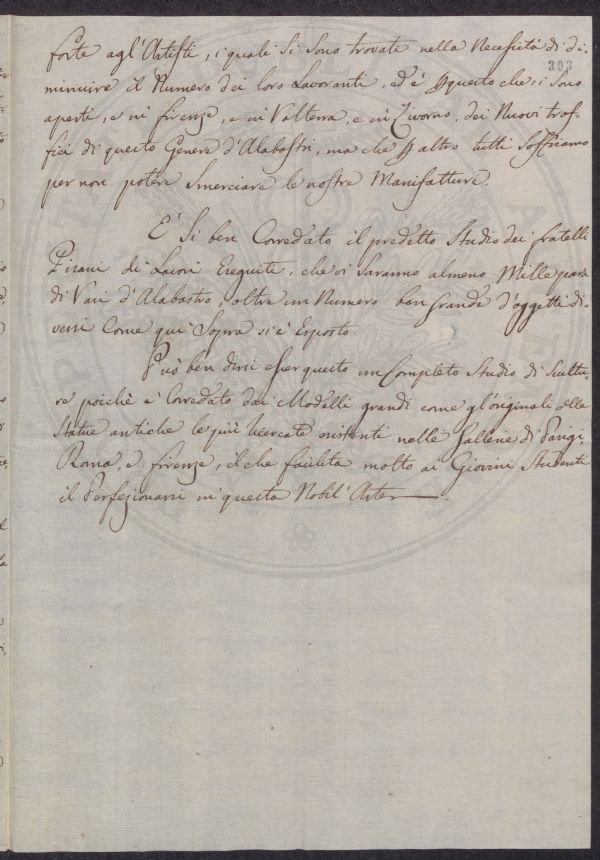 forte agl'Artisti, i quali Si Sono trovati nella Necessità di di:
303
minuire il Numero dei loro Lavoranti. Ed è p questo che, i Sono
aperti, e in firenze, e in Volterra, e in Livorno, dei Nuovi traf-
fici di questo Genere d'Alabastri, ma che p altro tutti Soffriamo
per non potere Smerciare le nostre Manifatture.
E' Si ben Corredato il predetto Studio dei fratelli
Pisani di Lavori Eseguiti, che vi Saranno almeno Mille para
di Vasi d'Alabastro, oltre un Numero ben grande d'oggetti di-
versi Come qui Sopra si è Esposto.
Può ben dirsi esser questo un Completo Studio di Scultu-
re poichè è Corredato dai Modelli grandi come gl'originali delle
Statue antiche le più ricercate esistenti nelle Gallerie di Parigi,
Roma, e firenze, il che facilita molto ai Giovini Studenti
il Perfezionarsi in questa Nobil'Arte.